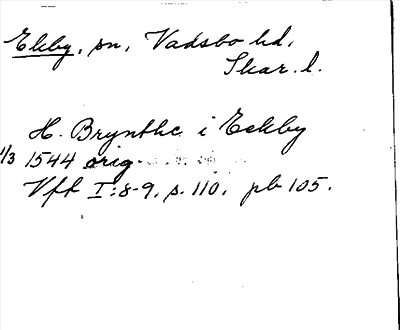 Ekby, sn, Vadsbo hd,
Skar. l.
H. Brynthe i Eekby
1/3 1544 orig.
Vft I:8-9, s. 110, pb 105.